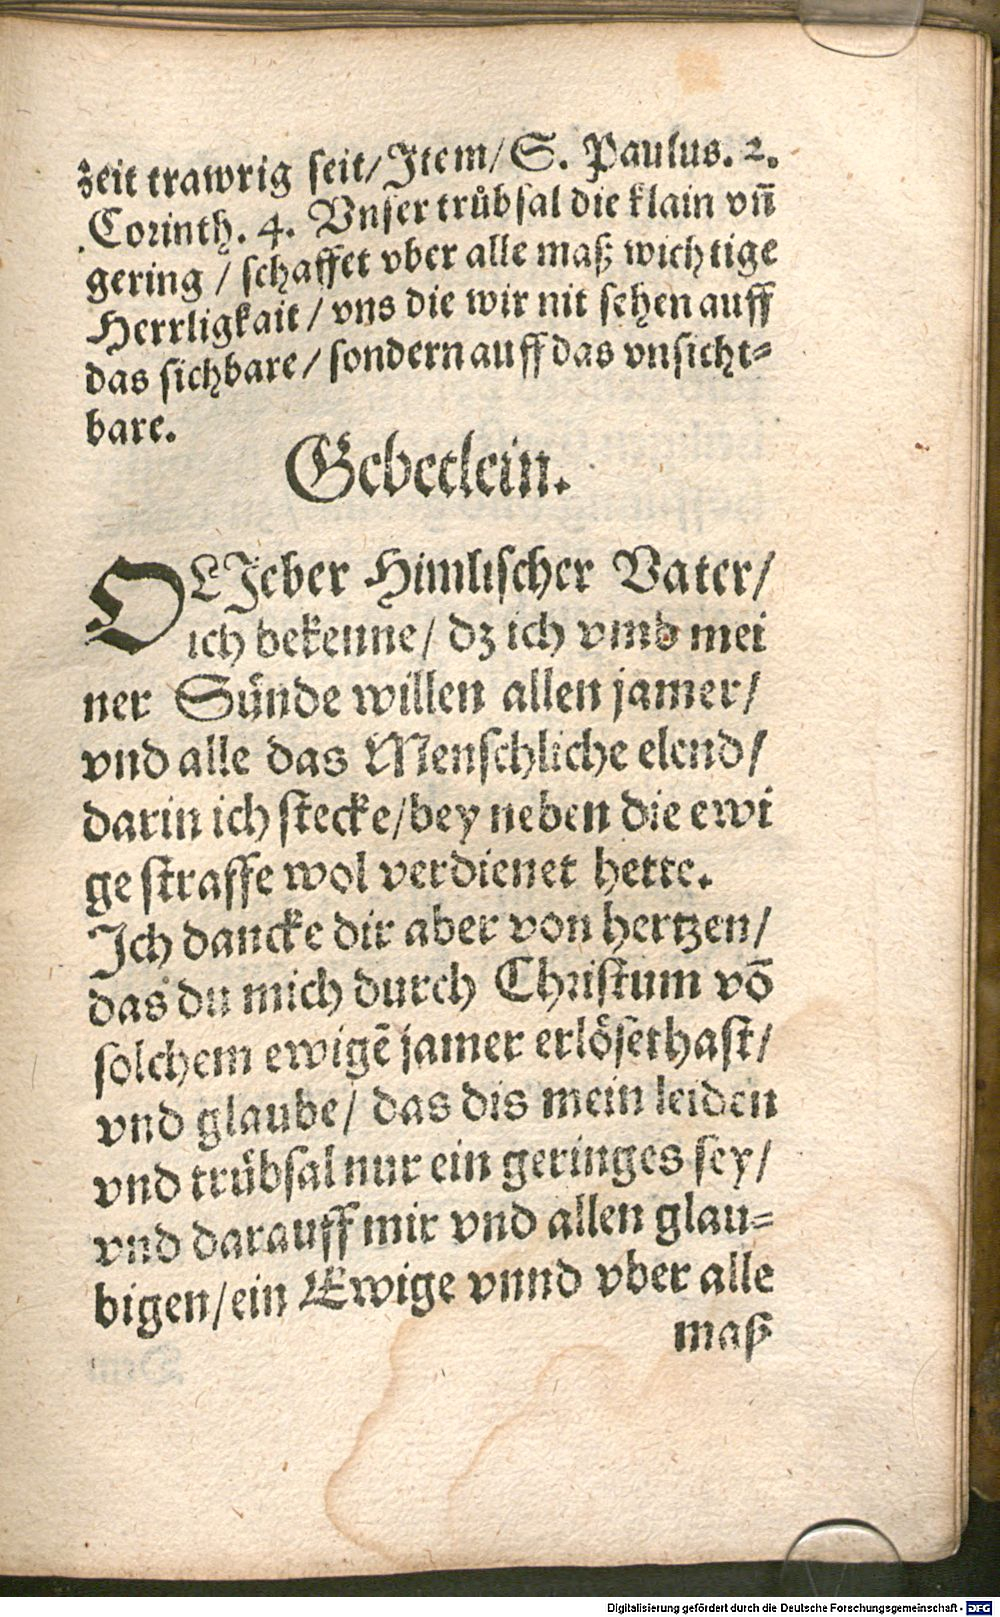 zeit trawrig seit/ Item/ S. Paulus. 2.
Corinth. 4. Vnser trůbsal die klain vñ
gering / schaffet vber alle maß wichtige
Herrligkait / vns die wir nit sehen auff
das sichbare / sondern auff das vnsicht⸗
bare.
Gebetlein.
O LIeber Himlischer Vater/
ich bekenne / dz ich vmb mei
ner Sünde willen allen jamer/
vnd alle das Menschliche elend/
darin ich stecke/bey neben die ewi
ge straffe wol verdienet hette.
Ich dancke dir aber von hertzen/
das du mich durch Christum võ
solchem ewigẽ jamer erlöset hast/
vnd glaube/ das dis mein leiden
vnd trübsal nur ein geringes sey/
vnd darauff mir vnd allen glau⸗
bigen/ein Ewige vnnd vber alle
maß
Digitalisierung gefördert durch die Deutsche Forschungsgemeinschaft - DFG